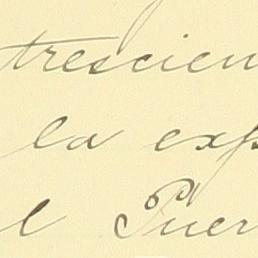 trescien
la exp
l Puer